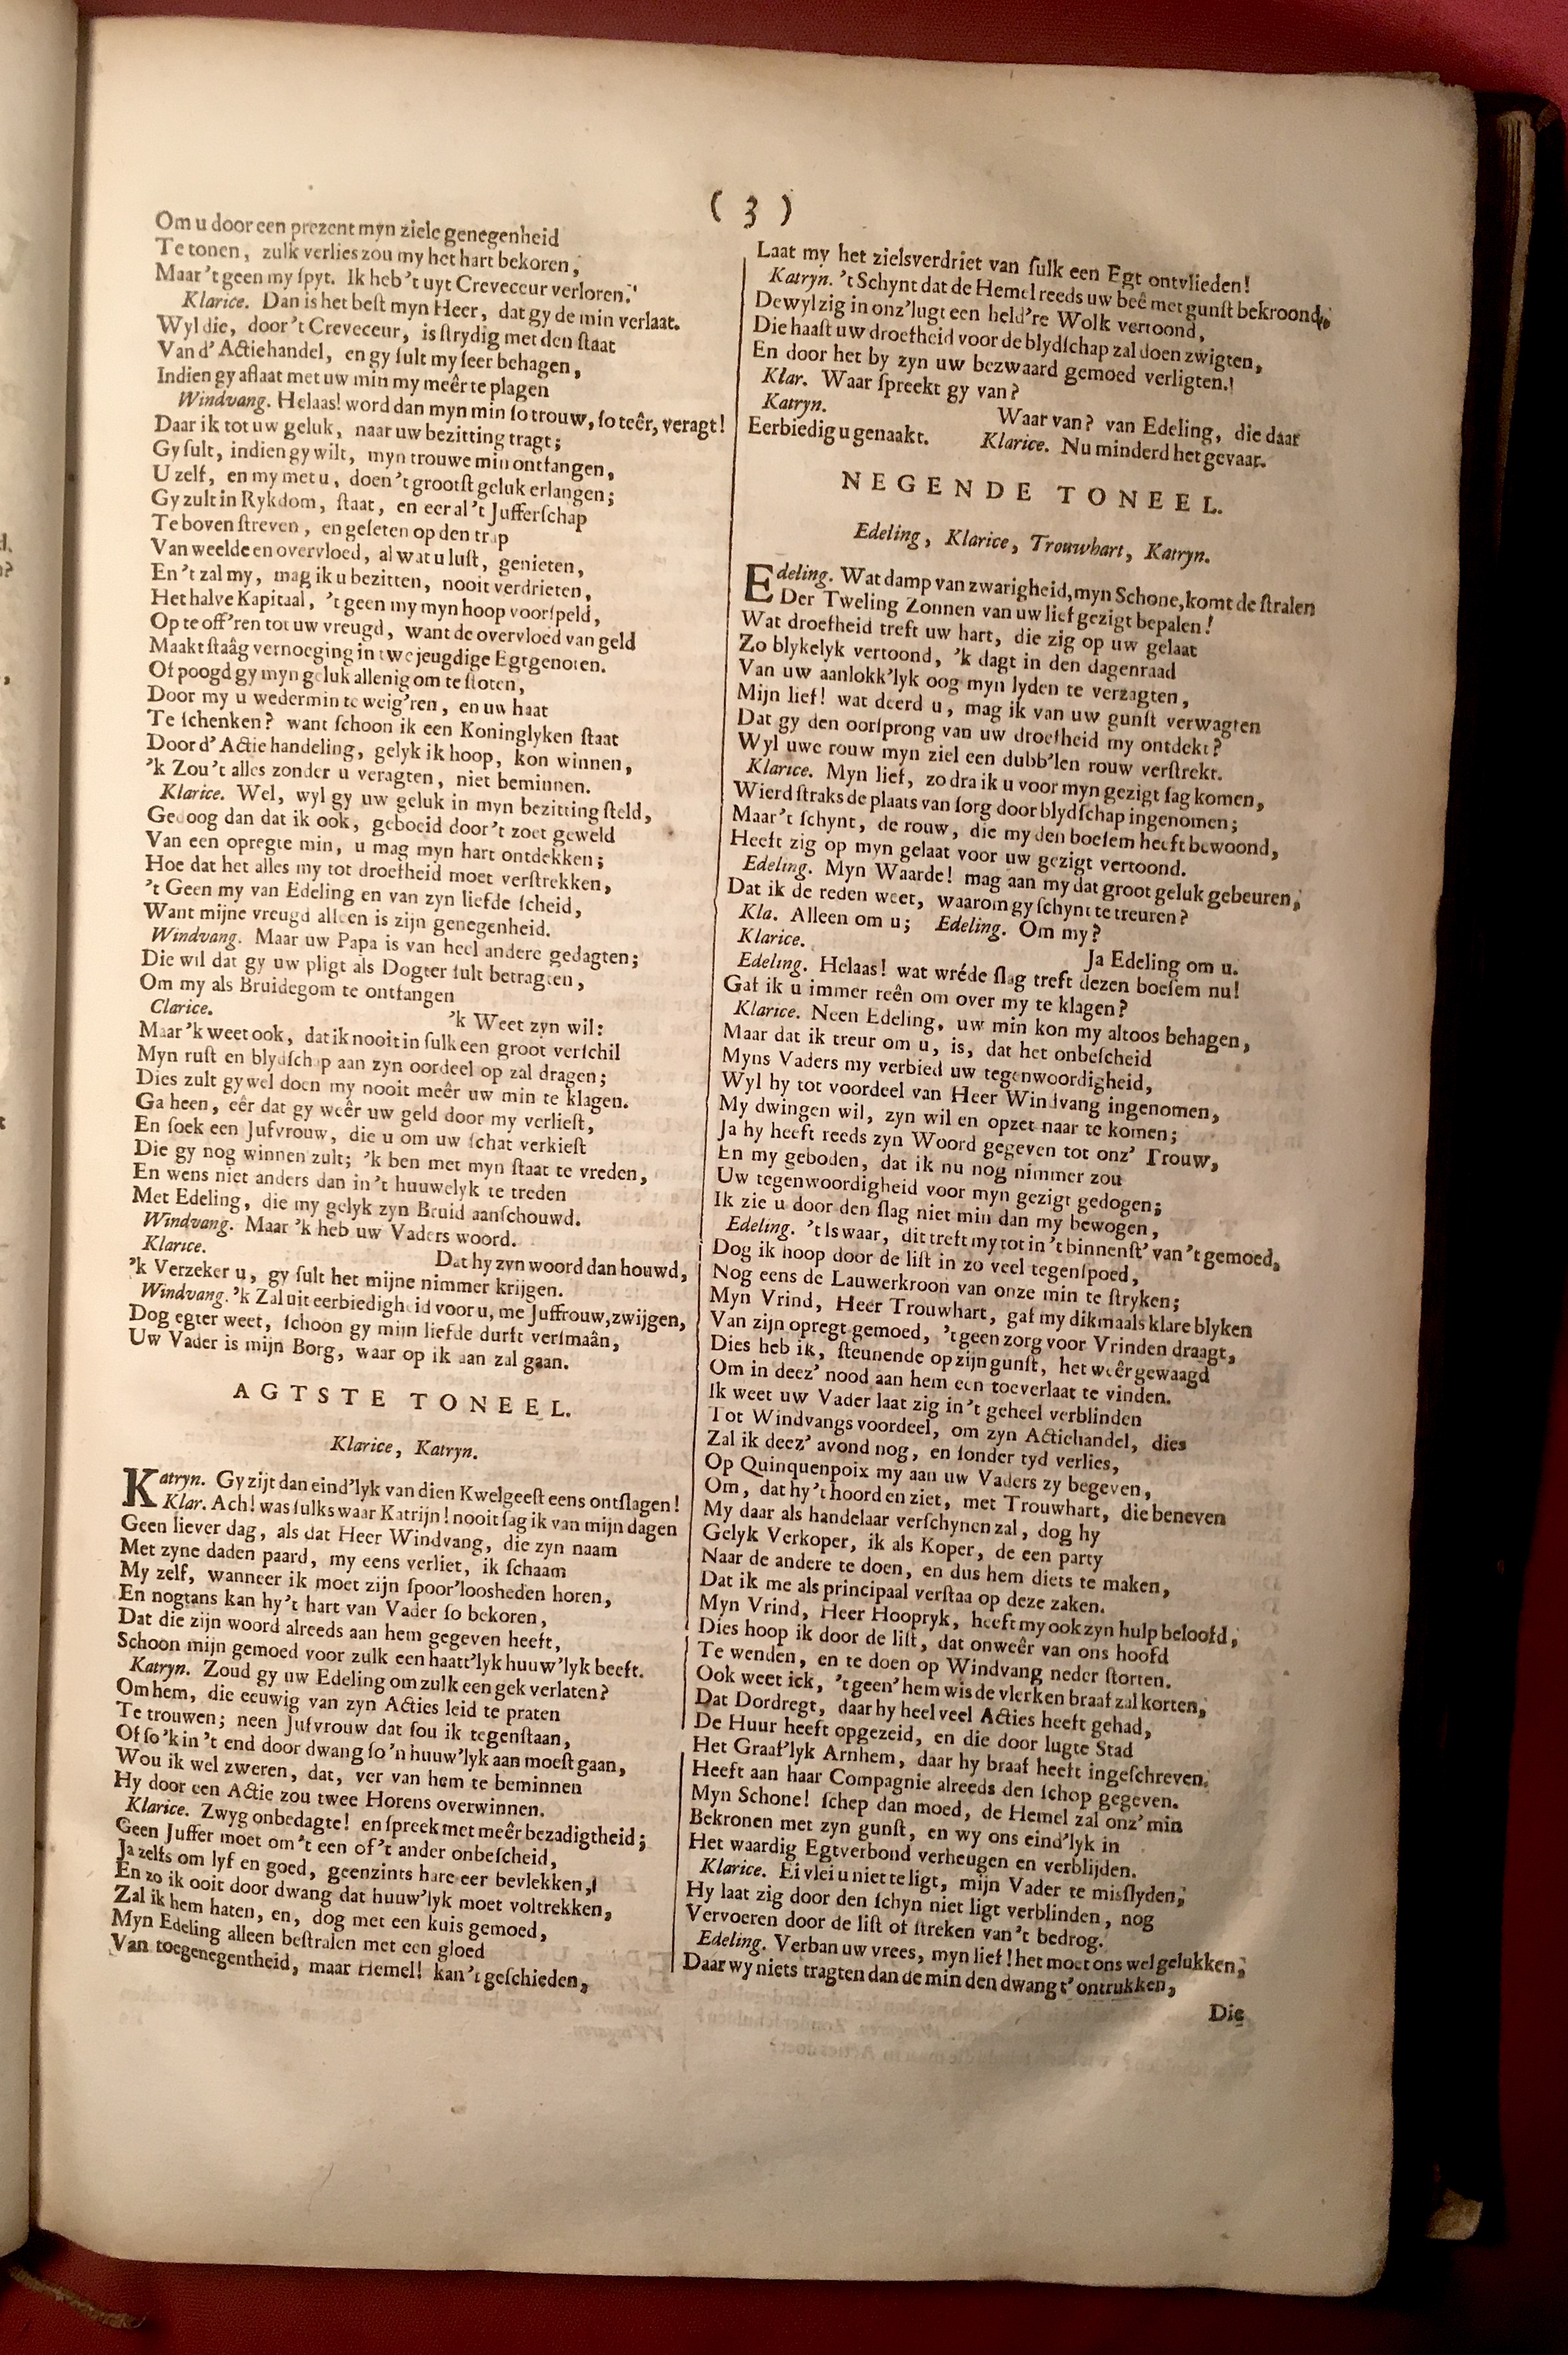 ( 3 )
Om u door een prezent myn ziele genegenheid
Te tonen, zulk verlies zou my het hart bekoren,
Maar 't geen my spyt. Ik heb 't uyt Creveceur verloren.
Klarice. Dan is het beſt myn Heer, dat gy de min verlaat.
Wyl die, door 't Creveceur, is ſtrydig met den ſtaat
Van d' Actiehandel, en gy ſult my ſeer behagen,
Indien gy aflaat met uw min my meêr te plagen
Windvang. Helaas! word dan myn min ſo trouw, ſo teêr, veragt!
Daar ik tot uw geluk, naar uw bezitting tragt;
Gy ſult, indien gy wilt, myn trouwe min ontfangen,
U zelf, en my met u, doen 't grootſt geluk erlangen;
Gy zult in Rykdom, ſtaat, en eer al 't Jufferſchap
Te boven ſtreven, en geſeten op den trap
Van weelde en overvloed, al wat u luſt, genieten,
En 't zal my, mag ik u bezitten, nooit verdrieten,
Het halve Kapitaal, 't geen my myn hoop voorſpeld,
Op te off'ren tot uw vreugd, want de overvloed van geld
Maakt ſtaâg vernoeging in twe jeugdige Egtgenoten.
Of poogd gy myn geluk allenig om te ſtoten,
Door my u wedermin te weig'ren, en uw haat
Te ſchenken? want ſchoon ik een Koninglyken ſtaat
Door d' Actie handeling, gelyk ik hoop, kon winnen,
'k Zou 't alles zonder u veragten, niet beminnen.
Klarice. Wel, wyl gy uw geluk in myn bezitting ſteld,
Gedoog dan dat ik ook, geboeid door 't zoet geweld
Van een opregte min, u mag myn hart ontdekken;
Hoe dat het alles my tot droefheid moet verſtrekken,
't Geen my van Edeling en van zyn liefde ſcheid,
Want mijne vreugd alleen is zijn genegenheid.
Windvang. Maar uw Papa is van heel andere gedagten;
Die wil dat gy uw pligt als Dogter ſult betragten,
Om my als Bruidegom te ontfangen
Clarice. 'k Weet zyn wil:
Maar 'k weet ook, dat ik nooit in ſulk een groot verſchil
Myn ruſt en blydſchap aan zyn oordeel op zal dragen;
Dies zult gy wel doen my nooit meêr uw min te klagen.
Ga heen, eêr dat gy weêr uw geld door my verlieſt,
En ſoek een Jufvrouw, die u om uw ſchat verkieſt
Die gy nog winnen zult; 'k ben met myn ſtaat te vreden,
En wens niet anders dan in 't huuwelyk te treden
Met Edeling, die my gelyk zyn Bruid aanſchouwd.
Windvang. Maar 'k heb uw Vaders woord.
Klarice. Dat hy zyn woord dan houwd,
'k Verzeker u, gy ſult het mijne nimmer krijgen.
Windvang. 'k Zal uit eerbiedigheid voor u, me Juffrouw, zwijgen,
Dog egter weet, ſchoon gy mijn liefde durft verſmaân,
Uw Vader is mijn Borg, waar op ik aan zal gaan.
AGTSTE TONEEL.
Klarice, Katryn.
Katryn. Gy zijt dan eind'lyk van dien Kwelgeeſt eens ontſlagen!
Klar. Ach! was ſulks waar Katrijn! nooit ſag ik van mijn dagen
Geen liever dag, als dat Heer Windvang, die zyn naam
Met zyne daden paard, my eens verliet, ik ſchaam
My zelf, wanneer ik moet zijn ſpoor'loosheden horen,
En nogtans kan hy 't hart van Vader ſo bekoren,
Dat die zijn woord alreeds aan hem gegeven heeft,
Schoon mijn gemoed voor zulk een haatt'lyk huuw'lyk beeft.
Katryn. Zoud gy uw Edeling om zulk een gek verlaten?
Om hem, die eeuwig van zyn Acties leid te praten
Te trouwen; neen Jufvrouw dat ſou ik tegenſtaan,
Of ſo 'k in 't end door dwang ſo 'n huuw'lyk aan moeſt gaan,
Wou ik wel zweren, dat, ver van hem te beminnen
Hy door een Actie zou twee Horens overwinnen.
Klarice. Zwyg onbedagte! en ſpreek met meêr bezadigtheid;
Geen Juffer moet om 't een of 't ander onbeſcheid,
Ja zelfs om lyf en goed, geenzints hare eer bevlekken,
En zo ik ooit door dwang dat huuw'lyk moet voltrekken,
Zal ik hem haten, en, dog met een kuis gemoed,
Myn Edeling alleen beſtralen met een gloed
Van toegenegentheid, maar Hemel! kan 't geſchieden,
Laat my het zielsverdriet van ſulk een Egt ontvlieden!
Katryn. 't Schynt dat de Hemel reeds uw beê met gunſt bekroond,
Dewyl zig in onz' lugt een held're Wolk vertoond,
Die haaſt uw droefheid voor de blydſchap zal doen zwigten,
En door het by zyn uw bezwaard gemoed verligten.
Klar. Waar ſpreekt gy van?
Katryn. Waar van? van Edeling, die daar
Eerbiedig u genaakt. Klarice. Nu minderd het gevaar.
NEGENDE TONEEL.
Edeling, Klarice, Trouwhart, Katryn.
Edeling. Wat damp van zwarigheid, myn Schone, komt de ſtralen
Der Tweling Zonnen van uw lief gezigt bepalen!
Wat droefheid treft uw hart, die zig op uw gelaat
Zo blykelyk vertoond, 'k dagt in den dagenraad
Van uw aanlokk'lyk oog myn lyden te verzagten,
Mijn lief! wat deerd u, mag ik van uw gunſt verwagten
Dat gy den oorſprong van uw droefheid my ontdekt?
Wyl uwe rouw myn ziel een dubb'len rouw verſtrekt.
Klarice. Myn lief, zo dra ik u voor myn gezigt ſag komen,
Wierd ſtraks de plaats van ſorg door blydſchap ingenomen;
Maar 't ſchynt, de rouw, die my den boeſem heeft bewoond,
Heeft zig op myn gelaat voor uw gezigt vertoond.
Edeling. Myn Waarde! mag aan my dat groot geluk gebeuren,
Dat ik de reden weet, waarom gy ſchynt te treuren?
Kla. Alleen om u; Edeling. Om my?
Klarice. Ja Edeling om u.
Edeling. Helaas! wat wréde ſlag treft dezen boeſem nu!
Gaf ik u immer reên om over my te klagen?
Klarice. Neen Edeling, uw min kon my altoos behagen,
Maar dat ik treur om u, is, dat het onbeſcheid
Myns Vaders my verbied uw tegenwoordigheid,
Wyl hy tot voordeel van Heer Windvang ingenomen,
My dwingen wil, zyn wil en opzet naar te komen;
Ja hy heeft reeds zyn Woord gegeven tot onz' Trouw,
En my geboden, dat ik nu nog nimmer zou
Uw tegenwoordigheid voor myn gezigt gedogen;
Ik zie u door den ſlag niet min dan my bewogen,
Edeling. 't Is waar, dit treft my tot in 't binnenſt' van 't gemoed,
Dog ik hoop door de liſt in zo veel tegenſpoed,
Nog eens de Lauwerkroon van onze min te ſtryken;
Myn Vrind, Heer Trouwhart, gaf my dikmaals klare blyken
Van zijn opregt gemoed, 't geen zorg voor Vrinden draagt,
Dies heb ik, ſteunende op zijn gunſt, het weêr gewaagd
Om in deez' nood aan hem een toeverlaat te vinden.
Ik weet uw Vader laat zig in 't geheel verblinden
Tot Windvangs voordeel, om zyn Actiehandel, dies
Zal ik deez' avond nog, en ſonder tyd verlies,
Op Quinquenpoix my aan uw Vaders zy begeven,
Om, dat hy 't hoord en ziet, met Trouwhart, die beneven
My daar als handelaar verſchynen zal, dog hy
Gelyk Verkoper, ik als Koper, de een party
Naar de andere te doen, en dus hem diets te maken,
Dat ik me als principaal verſtaa op deze zaken.
Myn Vrind, Heer Hoopryk, heeft my ook zyn hulp beloofd,
Dies hoop ik door de liſt, dat onweêr van ons hoofd
Te wenden, en te doen op Windvang neder ſtorten.
Ook weet ick, 't geen' hem wis de vlerken braaf zal korten,
Dat Dordregt, daar hy heel veel Acties heeft gehad,
De Huur heeft opgezeid, en die door lugte Stad
Het Graaf'lyk Arnhem, daar hy braaf heeft ingeſchreven,
Heeft aan haar Compagnie alreeds den ſchop gegeven.
Myn Schone! ſchep dan moed, de Hemel zal onz' min
Bekronen met zyn gunſt, en wy ons eind'lyk in
Het waardig Egtverbond verheugen en verblijden.
Klarice. Ei vlei u niet te ligt, mijn Vader te misſlyden,
Hy laat zig door den ſchyn niet ligt verblinden, nog
Vervoeren door de liſt of ſtreken van 't bedrog.
Edeling. Verban uw vrees, myn lief! het moet ons wel gelukken,
Daar wy niets tragten dan de min den dwang t' ontrukken,
Die